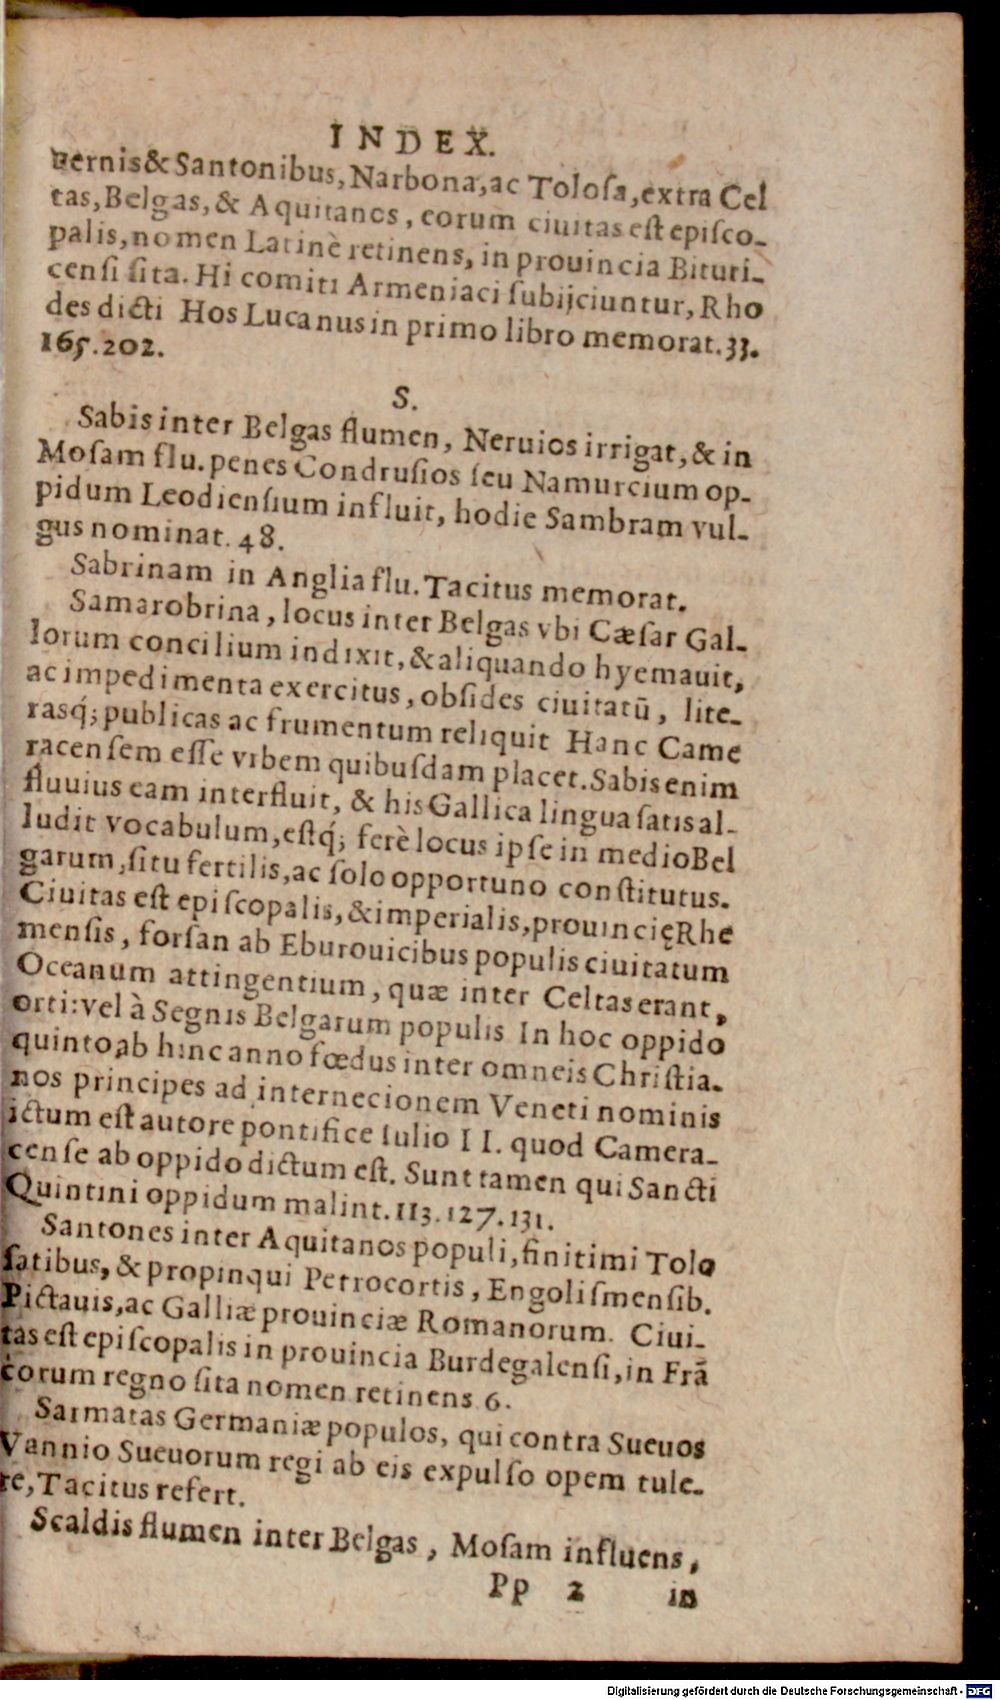 INDEX.
uernis & Santonibus, Narbona, ac Tolosa, extra Cel
tas, Belgas, & Aquitanos, eorum ciuitas est episco-
palis, nomen Latinè retinens, in prouincia Bituri-
censi sita. Hi comiti Armeniaci subijciuntur, Rho
des dicti Hos Lucanus in primo libro memorat. 33.
165. 202.
S.
Sabis inter Belgas flumen, Neruios irrigat, & in
Mosam flu. penes Condrusios seu Namurcium op-
pidum Leodiensium influit, hodie Sambram vul-
gus nominat. 48.
Sabrinam in Anglia flu. Tacitus memorat.
Samarobrina, locus inter Belgas vbi Cæsar Gal-
lorum concilium indixit, & aliquando hyemauit,
ac impedimenta exercitus, obsides ciuitatū, lite-
rasq́; publicas ac frumentum reliquit Hanc Came
racensem esse vrbem quibusdam placet. Sabis enim
fluuius eam interfluit, & his Gallica lingua satis al-
ludit vocabulum, estq́; ferè locus ipse in medio Bel
garum, situ fertilis, ac solo opportuno constitutus.
Ciuitas est episcopalis, & imperialis, prouincię Rhe
mensis, forsan ab Eburouicibus populis ciuitatum
Oceanum attingentium, quæ inter Celtas erant,
orti: vel à Segnis Belgarum populis In hoc oppido
quinto ab hinc anno fœdus inter omneis Christia-
nos principes ad internecionem Veneti nominis
ictum est autore pontifice Iulio II. quod Camera-
cense ab oppido dictum est. Sunt tamen qui Sancti
Quintini oppidum malint. 113. 127. 131.
Santones inter Aquitanos populi, finitimi Tolo
satibus, & propinqui Petrocortis, Engolismensib.
Pictauis, ac Galliæ prouinciæ Romanorum. Ciui-
tas est episcopalis in prouincia Burdegalensi, in Frā
corum regno sita nomen retinens 6.
Sarmatas Germaniæ populos, qui contra Sueuos
Vannio Sueuorum regi ab eis expulso opem tule-
re, Tacitus refert.
Scaldis flumen inter Belgas, Mosam influens,
Pp 2 in
Digitalisierung gefördert durch die Deutsche Forschungsgemeinschaft - DFG